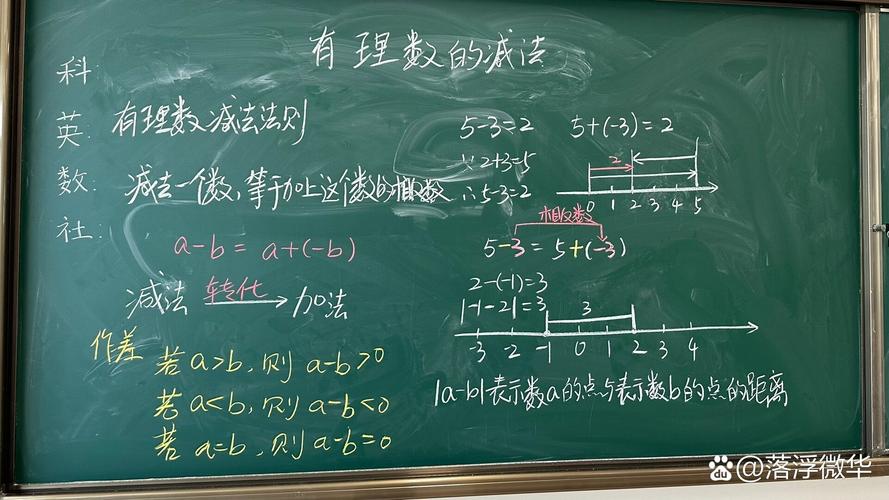 有理数的减法
科英数社
有理数减法法则
减去一个数,等于加上这个数的相反数
a-b = a+(-b)
减法 转化 加法
作差
若a>b,则 a-b>0
若a<b,则 a-b<0
若a=b,则 a-b=0
5-3=2 5+(-3)=2
∵2+3=5
∴5-3=2
2
0 1 2 3 4 5
相反数
5-3=5+(-3)
2-(-1)=3
|-1-2|=3
3
-3 -2 -1 0 1 2 3 4
|a-b|表示数a的点与表示数b的点的距离
du @落浮微华